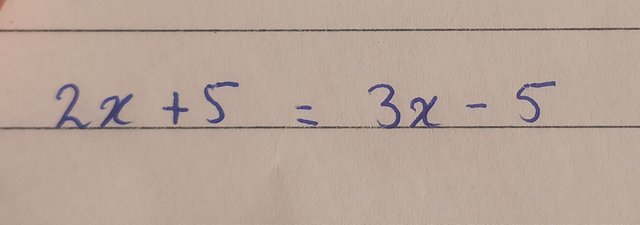 2x + 5 = 3x - 5